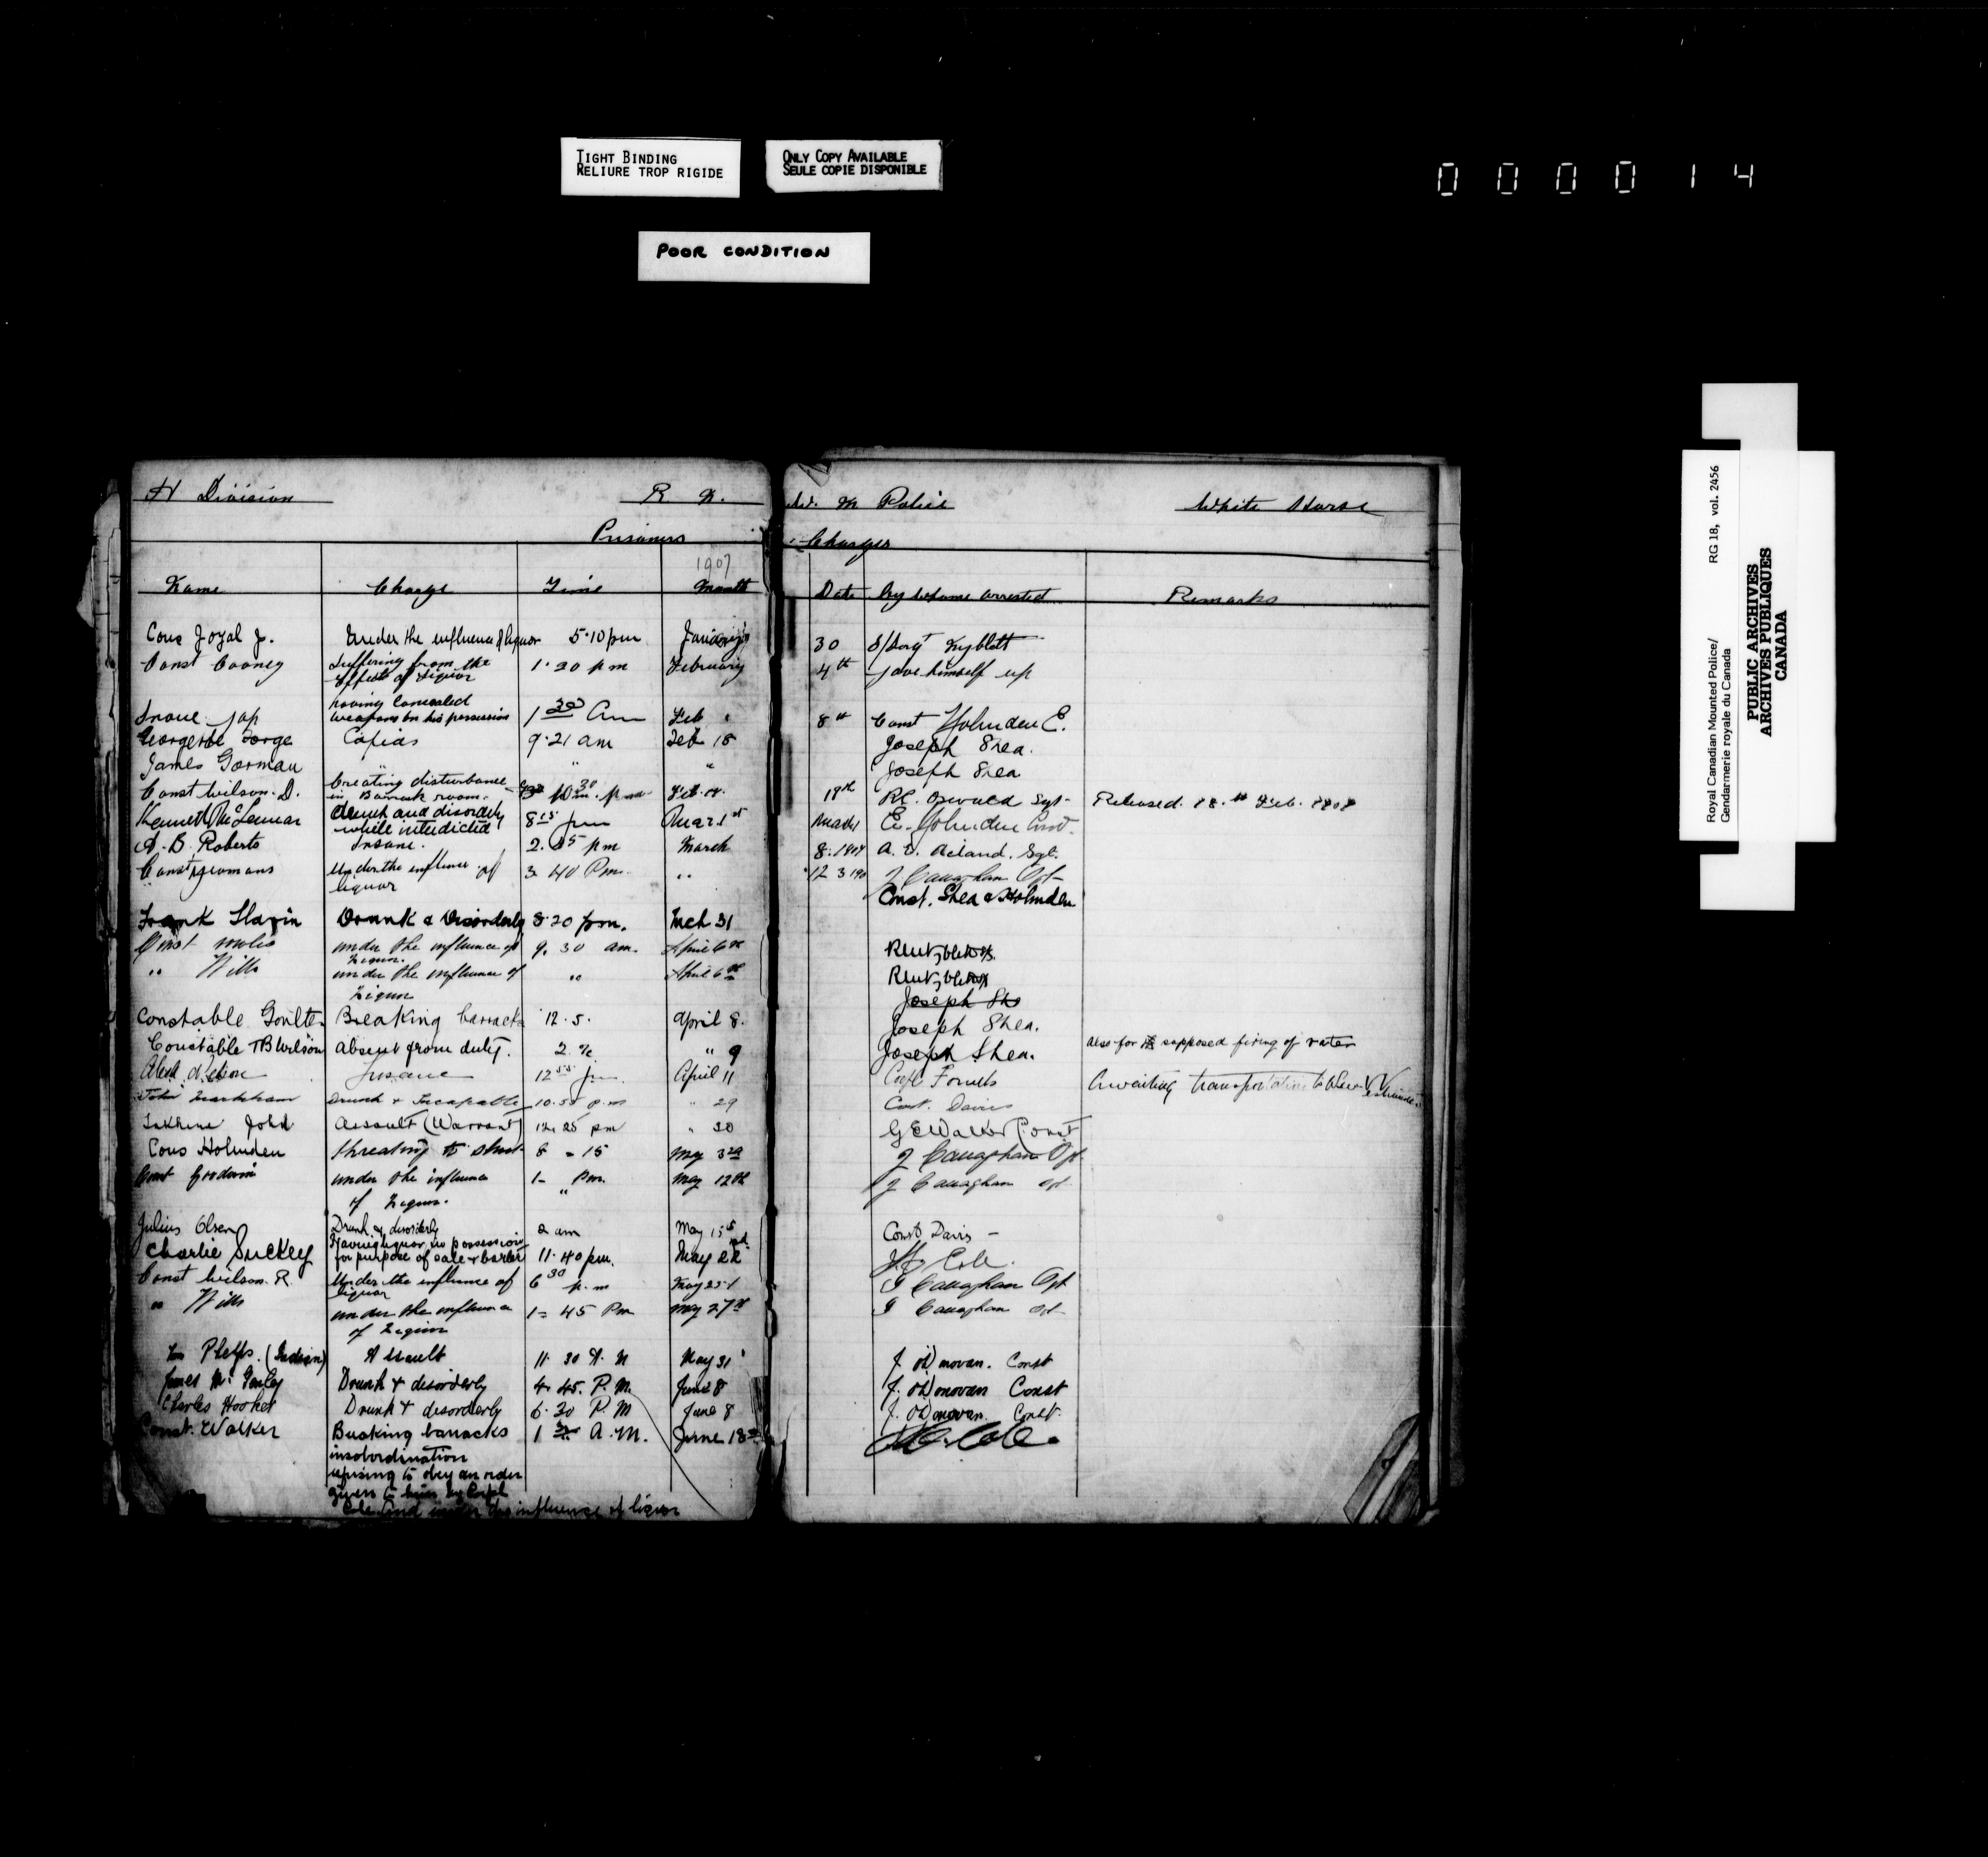 TIGHT BINDING
RELIURE TROP RIGIDE
ONLY COPY AVAILABLE
SEULE COPIE DISPONIBLE
000014
POOR CONDITION
Royal Canadian Mounted Police/ RG 18, vol. 2456
Gendarmerie royale du Canada
PUBLIC ARCHIVES
ARCHIVES PUBLIQUES
CANADA
H Division R N. W. M Police White Horse
Prisoners Charges
1907
Name Charge Time Month Date By whome arrested Remarks
Cons Joyal J. Under the influence of liquor 5.10 pm January 30 S/Sergt
Const Cooney Suffering from the 1.30 pm February 4th gave himself up
Effects of Liquor
having Concealed
Jap weapons in his possession 1 30 Am Feb " 8th Const Holmden E.
George Capias 9.21 am Feb 18 Joseph Shea.
James Gorman " " " Joseph Shea
Const Wilson. D. Creating disturbance 10 30 pm Feb. 18th Sgt. Released. Feb.
in Barrack room.
Kenneth McLennan drunk and disorderly 8 15 pm Mar 1st March E. Holmden Const.
while interdicted
A. B. Roberts Insane. 2.15 pm March 8. 1907 A. Acland. Sgt.
Const Yeomans Under the influence of 3 40 Pm. " 12 3 190 J Canaghan Cpl
liquor
Const. Shea & Holmden
Frank Slavin Drunk & Disorderly 8.20 pm. Mch 31
Const under the influence of 9.30 am. April 6th
Liquor.
" Wills under the influence of " April 6th
Liquor
Joseph Sh
Constable Goulter Breaking barracks 12.5. April 8. Joseph Shea.
Constable TB Wilson Absent from duty. 2. " 9 Joseph Shea. also for supposed firing of
Insane 12 55 pm April 11 Corpl Awaiting transportation to New Westminster
John Markham Drunk & Incapable 10.55 p.m " 29 Const. Davis
John Assault (Warrant) 12.25 pm " 30 GE Walker Const
Cons Holmden threating to shoot 6 - 15 May 3rd J Canaghan Cpl
Const Goodwin under the influence 1- Pm. May 12th J Canaghan Cpl
of Liquor. "
Julius Olsen Drunk & disorderly 2 am May 15th Const Davis -
Having liquor in possession
Charlie Suckey for purpose of sale & barter 11.40 pm. May 22nd Cole.
Const Wilson. R. Under the influence of 6 30 p.m May 25th J Canaghan Cpl
liquor
" Wills under the influence 1= 45 Pm May 27th J Canaghan Cpl
of Liquor
(Indian) Assault 11.30 May 31 J. O'Donovan. Const
James Drunk & disorderly 4.45. P.M. June 8 J. O'Donovan Const
Charles Hooker Drunk & disorderly 6.30 P.M June 8 J. O'Donovan. Const.
Const. Walker Breaking barracks 1 A.M. June 18th Cole.
insubordination
refusing to obey an order
given to him by Corpl
Cole and under the influence of liquor